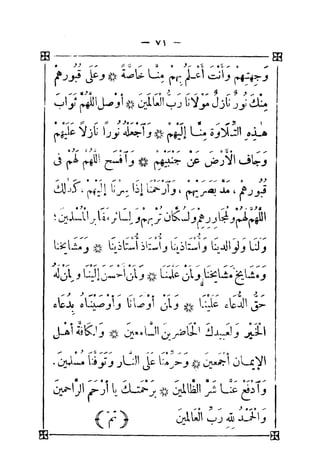 — ٧١ —
وَجِهَتِهِمْ وَأَنْتَ أَعْلَمُ بِهِمْ مِنَّا خَاصَّةً * وَعَلَى قُبُورِهِمْ
مِنْكَ نُورٌ نَازِلٌ مَوْلَانَا رَبَّ الْعَالَمِينَ * أَوْصِلِ اللَّهُمَّ ثَوَابَ
هٰذِهِ التِّلَاوَةِ مِنَّا إِلَيْهِمْ * وَاجْعَلْهُ نُورًا نَازِلًا عَلَيْهِمْ
وَجَافِ الْأَرْضَ عَنْ جَنْبَيْهِمْ * وَافْسَحِ اللَّهُمَّ لَهُمْ فِى
قُبُورِهِمْ ، مَدَّ بَصَرِهِمْ ، وَارْحَمْنَا إِذَا صِرْنَا إِلَيْهِمْ . كَذٰلِكَ
اللَّهُمَّ لَهُمْ وَلِمُجَاوِرِهِمْ وَلِسُكَّانِ تُرَبِهِمْ وَلِسَائِرِ مَقَابِرِ الْمُسْلِمِينَ ؛
وَلَنَا وَلِوَالِدِينَا وَأُسْتَاذِينَا وَأُسْتَاذِ أُسْتَاذِينَا * وَمَشَايِخِنَا
وَمَشَايِخِ مَشَايِخِنَا وَلِمَنْ عَلَّمَنَا * وَلِمَنْ أَحْسَنَ إِلَيْنَا وَلِمَنْ لَهُ
حَقُّ الدُّعَاءِ عَلَيْنَا * وَلِمَنْ أَوْصَانَا وَأَوْصَيْنَاهُ بِدُعَاءِ
الْخَيْرِ وَلِعَبِيدِكَ الْحَاضِرِينَ السَّامِعِينَ * وَلِكَافَّةِ أَهْلِ
الْإِيمَانِ أَجْمَعِينَ * وَحَرِّمْنَا عَلَى النَّارِ وَتَوَفَّنَا مُسْلِمِينَ .
وَادْفَعْ عَنَّا شَرَّ الظَّالِمِينَ * بِرَحْمَتِكَ يَا أَرْحَمَ الرَّاحِمِينَ
وَالْحَمْدُ لِلهِ رَبِّ الْعَالَمِينَ ﴿ تم ﴾